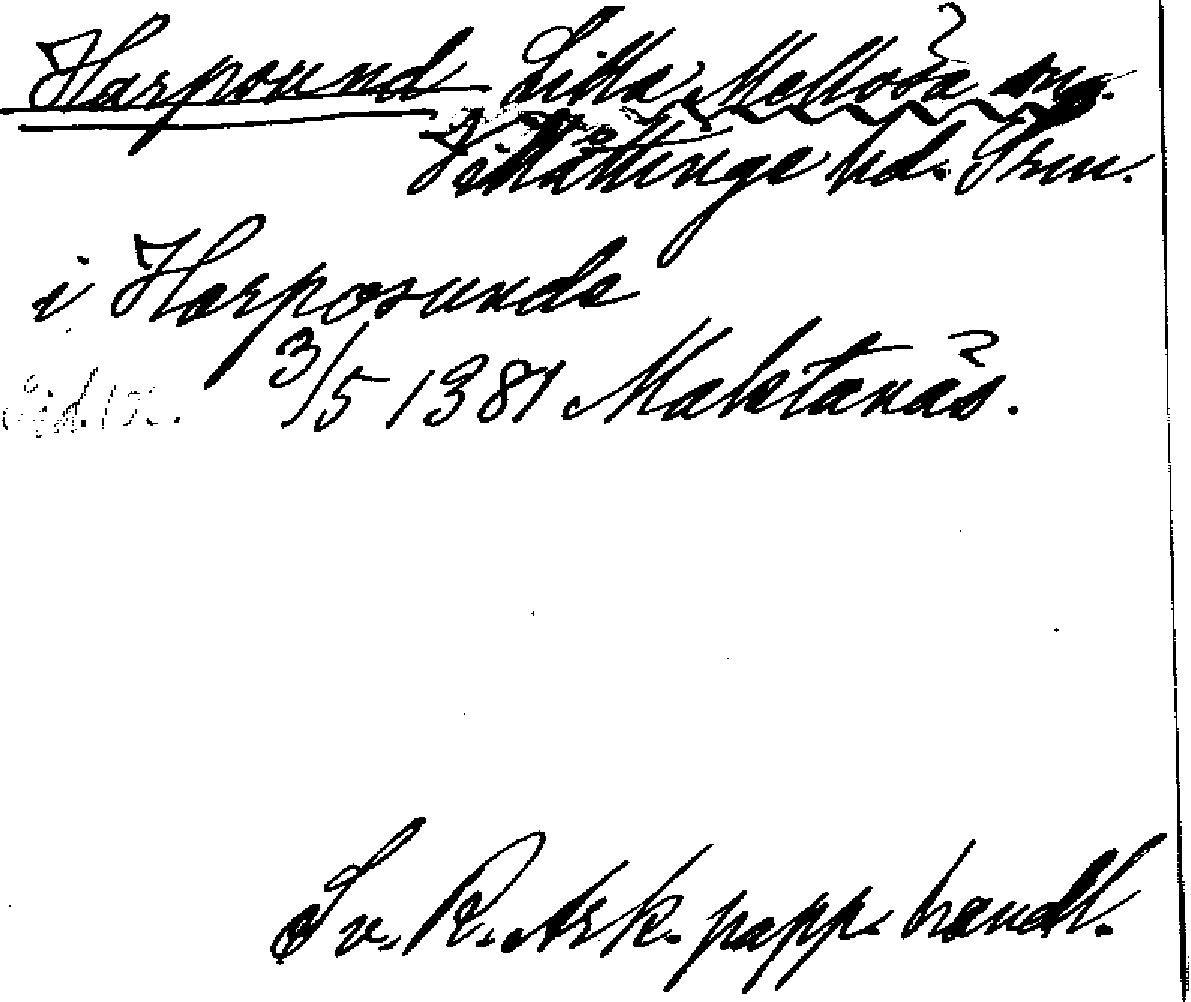 Harpsund Lilla Mellösa sn.
Villåttinge hd. Srm.
i Harposunde
3/5 1381 Malstanäs.
Sv. R. Ark. papp. handl.